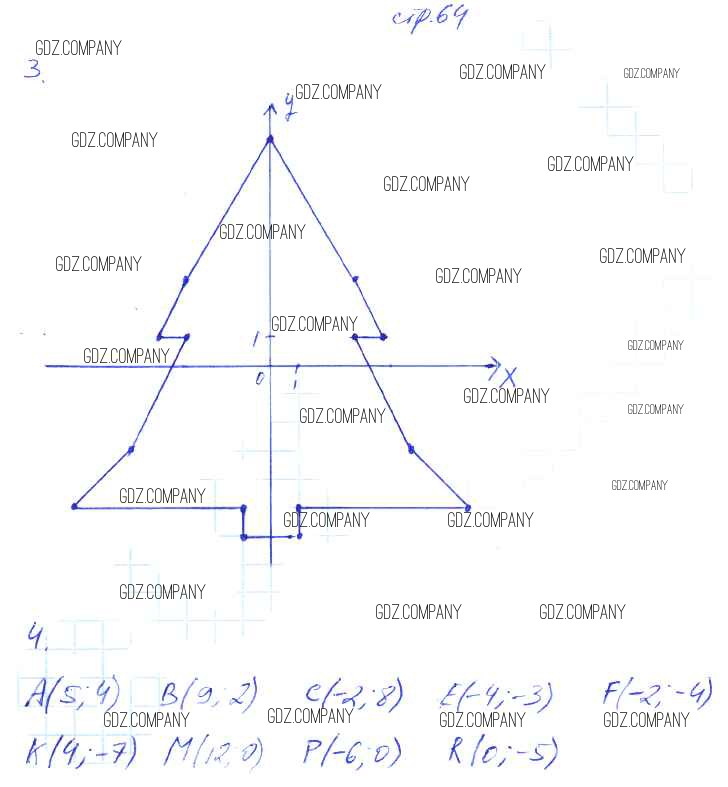 стр.64
GDZ.COMPANY
3.
GDZ.COMPANY
GDZ.COMPANY
GDZ.COMPANY
y
GDZ.COMPANY
GDZ.COMPANY
GDZ.COMPANY
GDZ.COMPANY
GDZ.COMPANY
GDZ.COMPANY
GDZ.COMPANY
GDZ.COMPANY
1
GDZ.COMPANY
GDZ.COMPANY
GDZ.COMPANY
0
1
x
GDZ.COMPANY
GDZ.COMPANY
GDZ.COMPANY
GDZ.COMPANY
GDZ.COMPANY
GDZ.COMPANY
GDZ.COMPANY
GDZ.COMPANY
GDZ.COMPANY
GDZ.COMPANY
4.
A(5; 4) B(9; 2) C(-2; 8) E(-4; -3) F(-2; -4)
GDZ.COMPANY GDZ.COMPANY GDZ.COMPANY GDZ.COMPANY
K(4; -7) M(12; 0) P(-6; 0) R(0; -5)